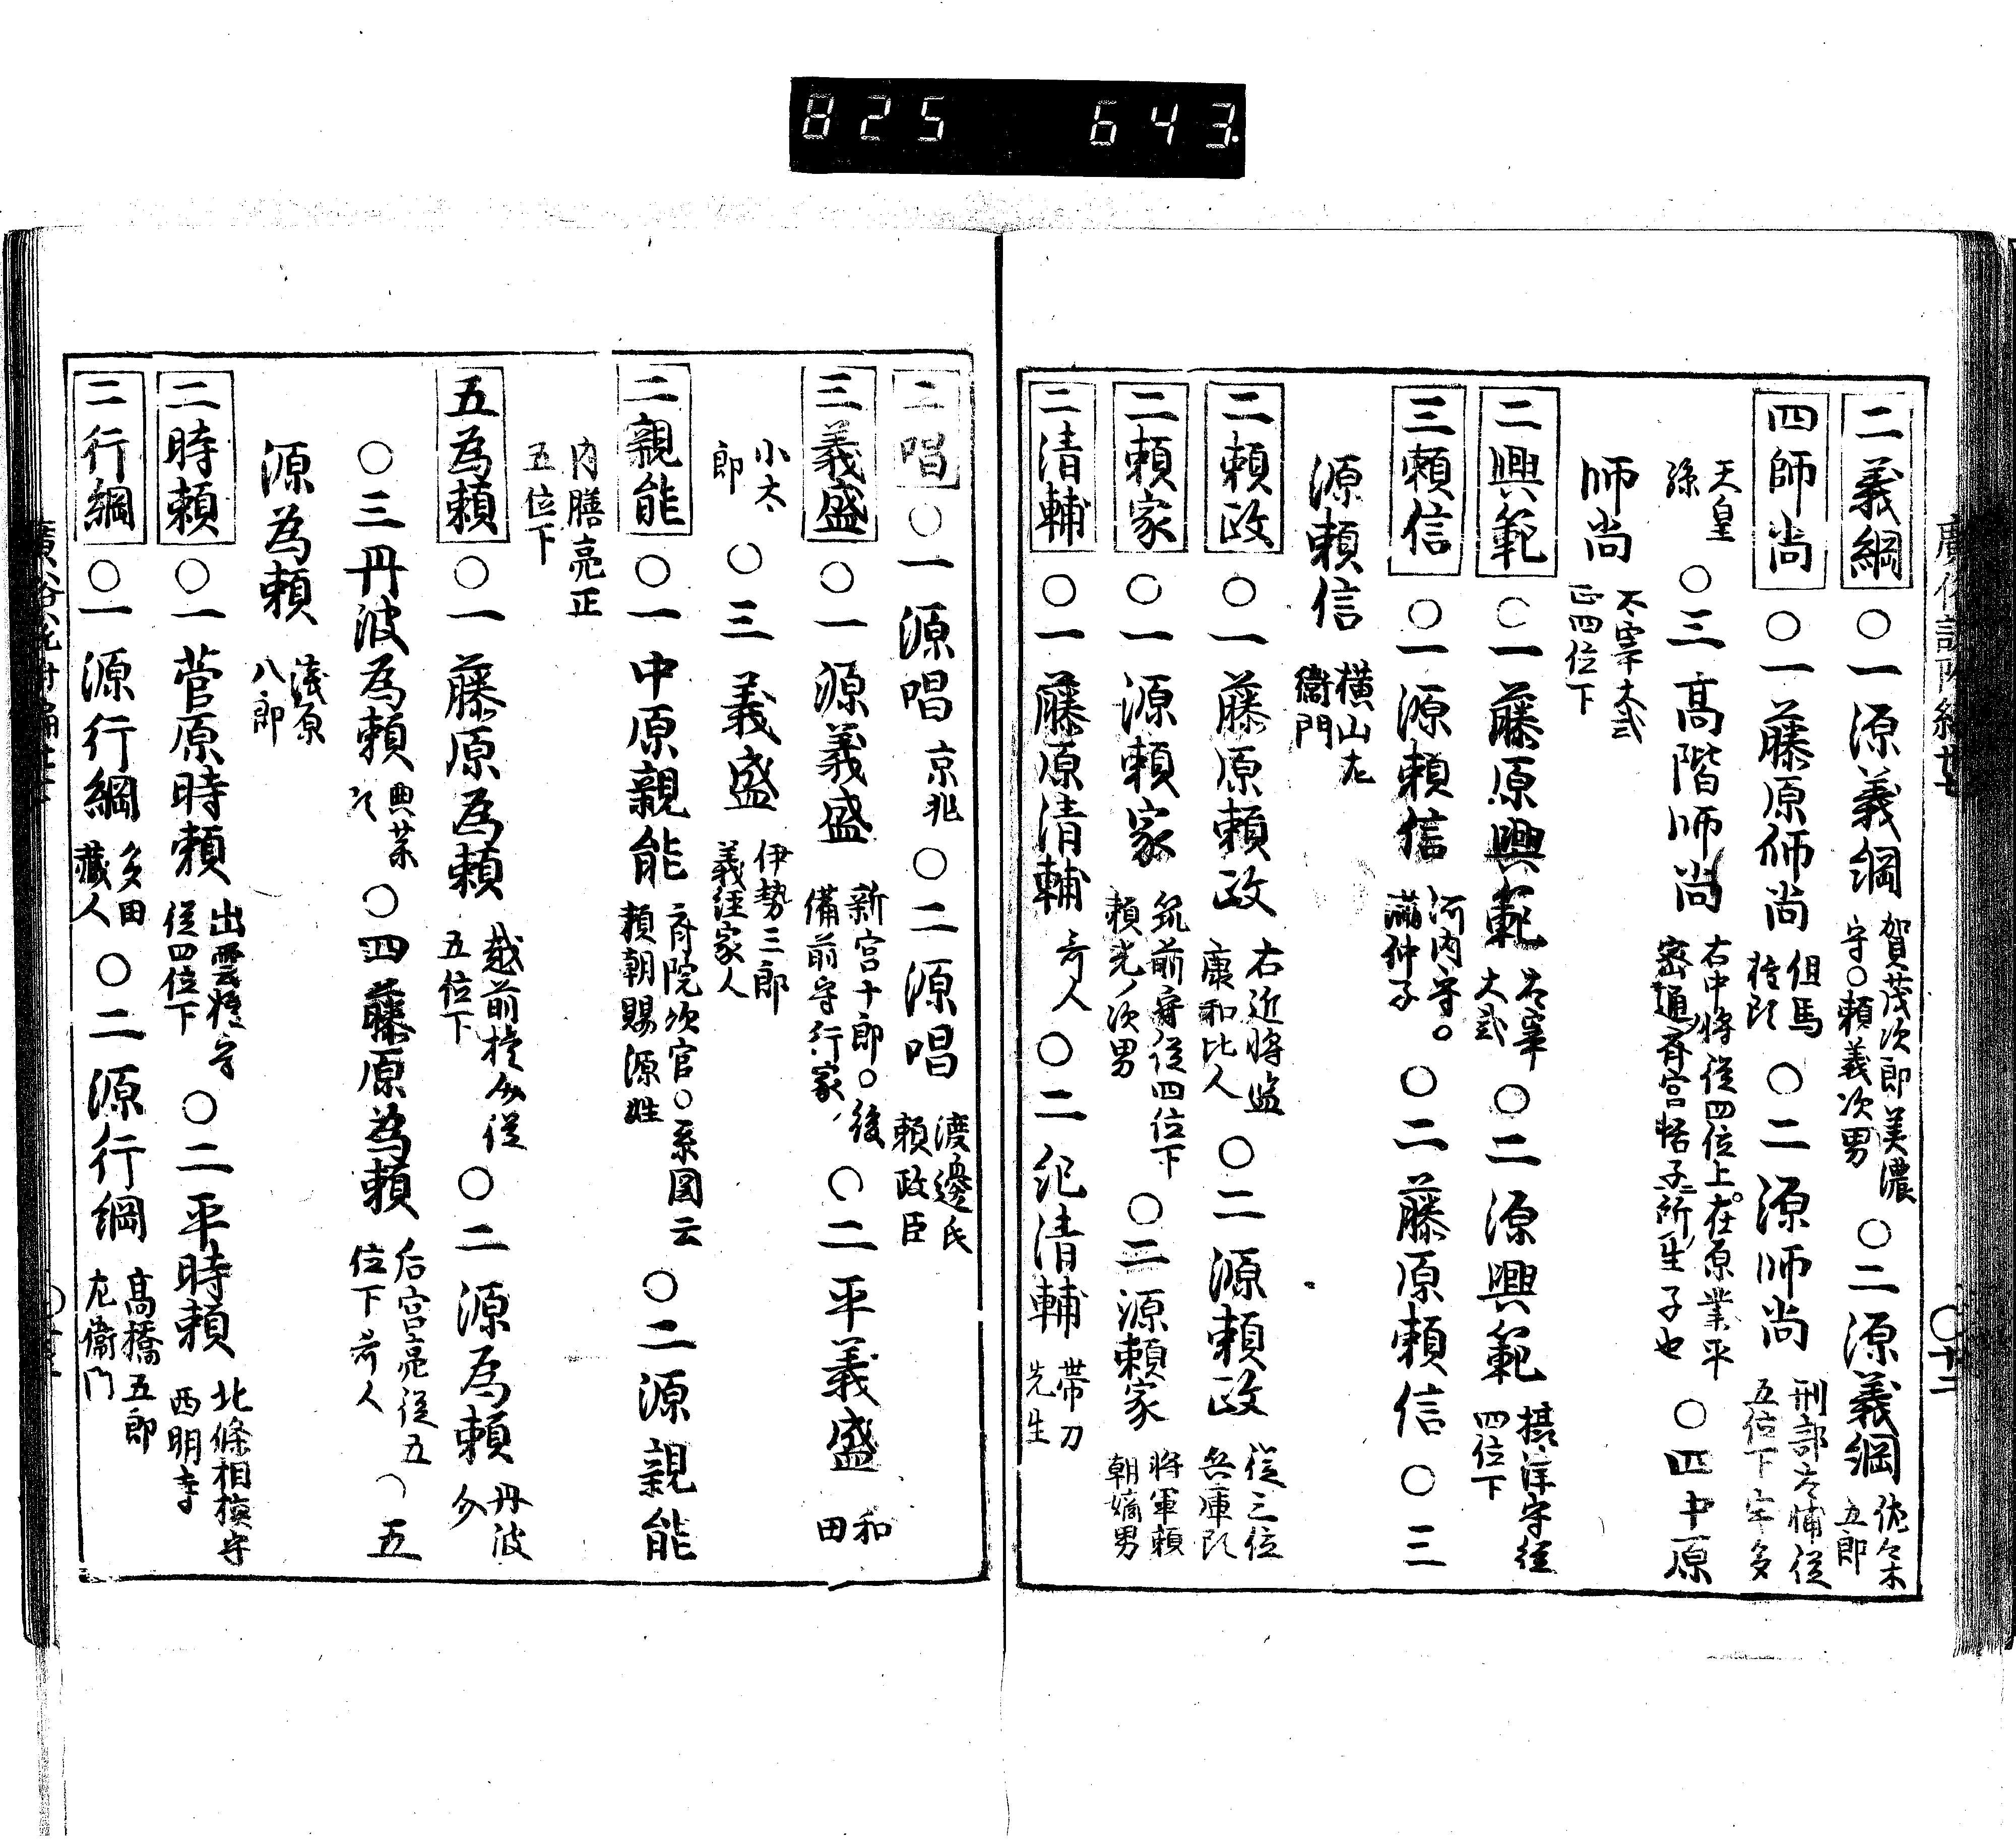 825 643.
二義綱 〇一源義綱 賀茂次郎美濃守〇頼義次男 〇二源義綱 佐々木五郎
四師尚 〇一藤原師尚 但馬権頭 〇二源師尚 刑部少輔従五位下宇多
天皇孫 〇三高階師尚 右中将従四位上。在原業平密通斎宮恬子所生子也 〇四中原
師尚 大宰大弐正四位下
二興範 〇一藤原興範 太宰大弐 〇二源興範 摂津守従四位下
三頼信 〇一源頼信 河内守。満仲子 〇二藤原頼信 〇三
源頼信 横山左衛門
二頼政 〇一藤原頼政 右近将監康和比人 〇二源頼政 従三位兵庫頭
二頼家 〇一源頼家 筑前守従四位下頼光ノ次男 〇二源頼家 将軍頼朝嫡男
二清輔 〇一藤原清輔 哥人 〇二紀清輔 帯刀先生
二唱 〇一源唱 京兆 〇二源唱 渡邊氏頼政臣
三義盛 〇一源義盛 新宮十郎〇後備前守行家 〇二平義盛 和田
小太郎 〇三義盛 伊勢三郎義経家人
二親能 〇一中原親能 斎院次官〇系図云頼朝賜源姓 〇二源親能
内膳亮正五位下
五為頼 〇一藤原為頼 越前権介従五位下 〇二源為頼 丹波介
〇三丹波為頼 典薬頭 〇四藤原為頼 后宮亮従五位下哥人 〇五
源為頼 浅原八郎
二時頼 〇一菅原時頼 出雲権守従四位下 〇二平時頼 北條相模守西明寺
二行綱 〇一源行綱 多田蔵人 〇二源行綱 高橋五郎左衛門